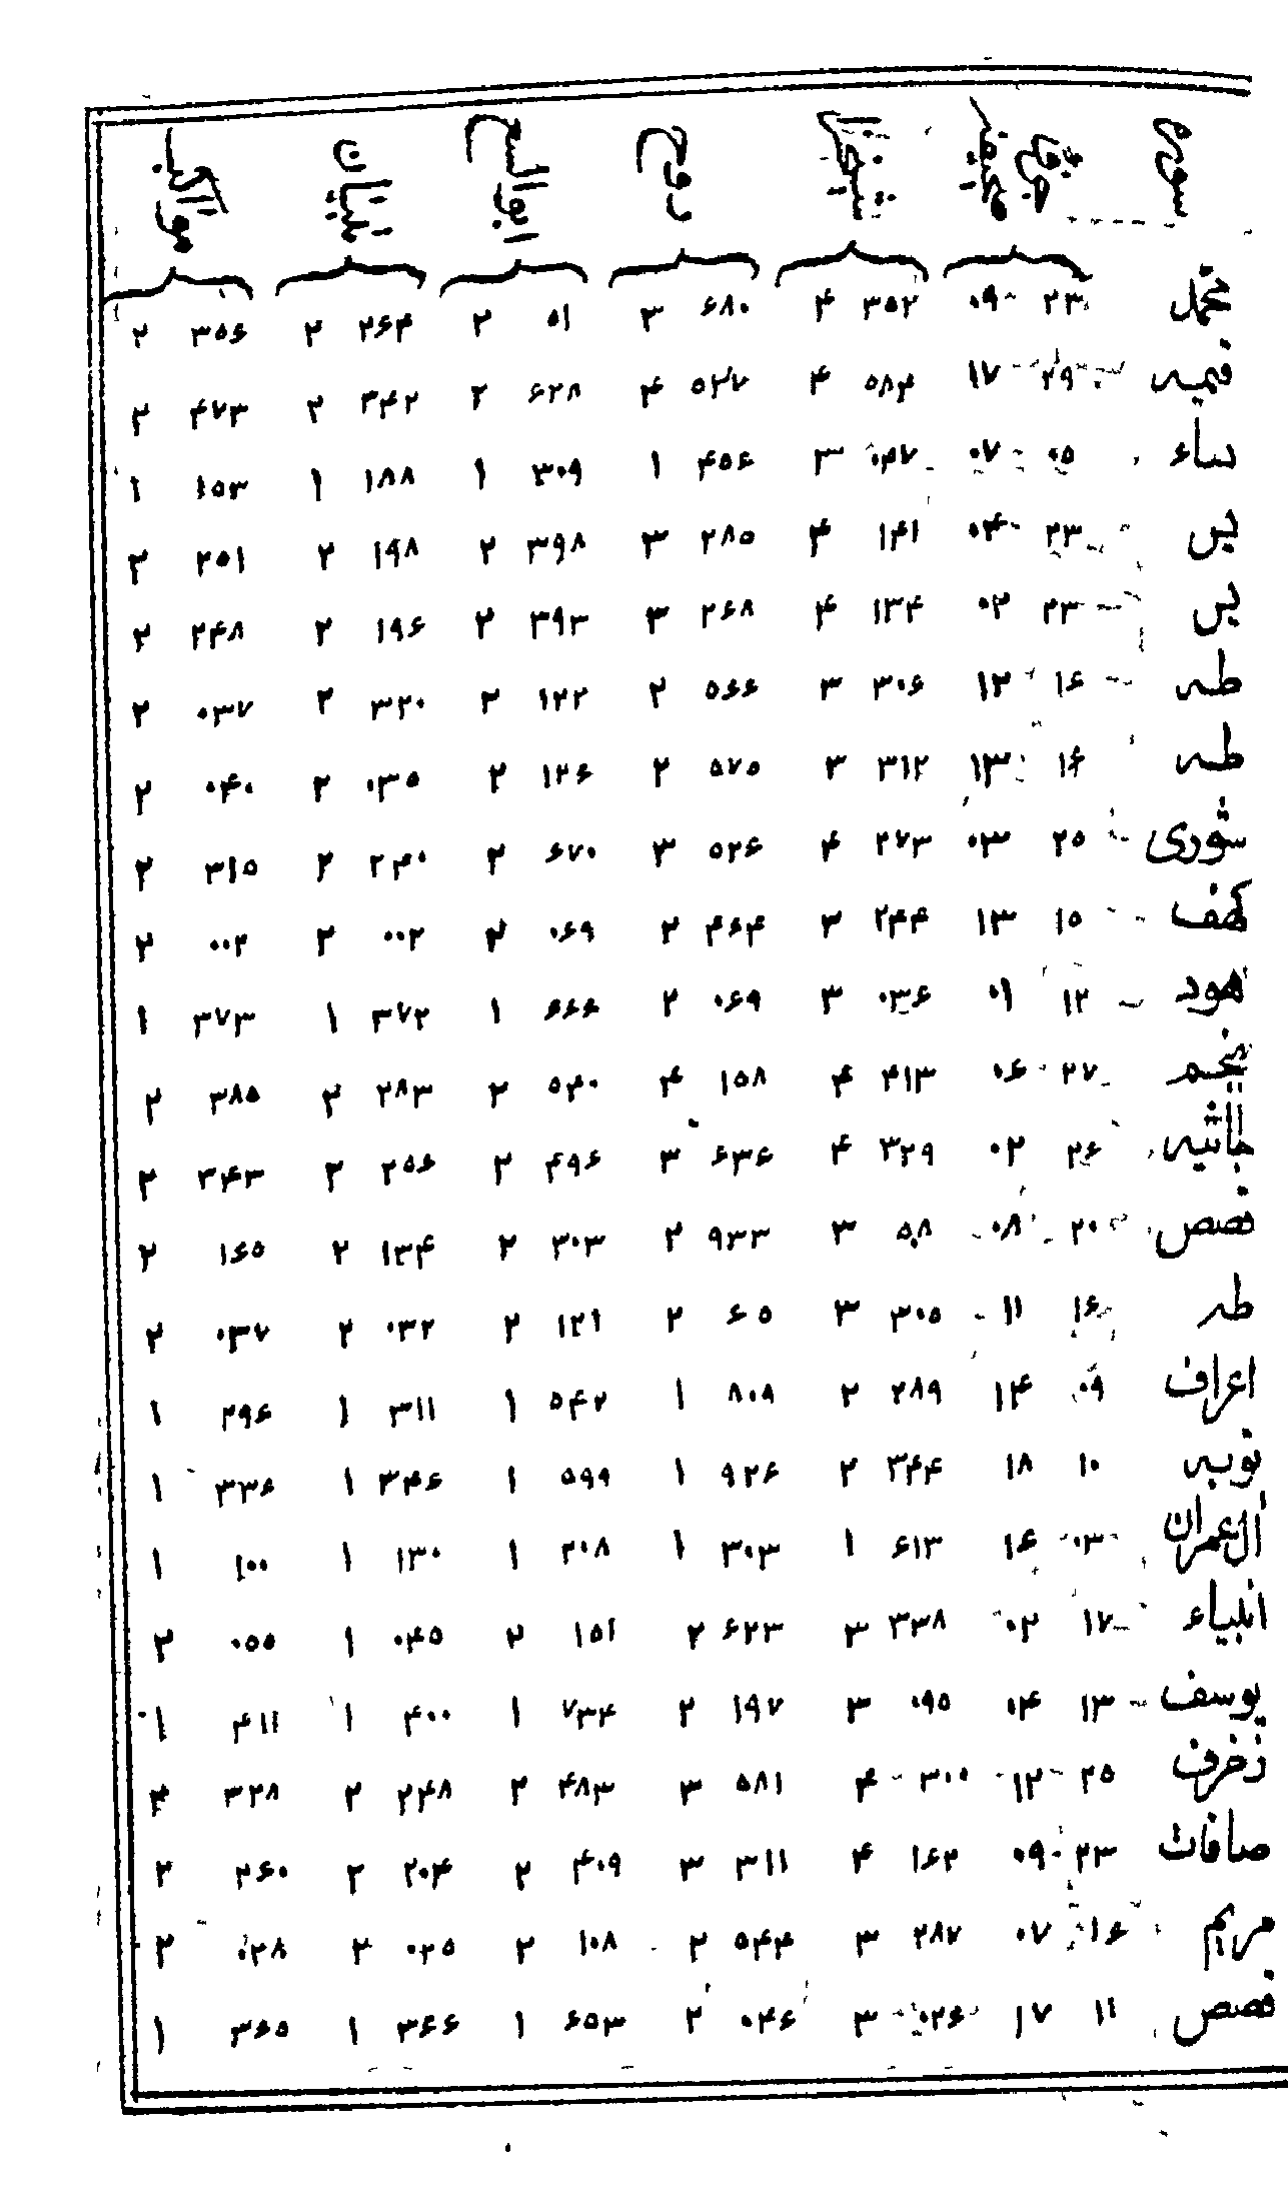 سوره روح تبیان
محمد ۲۳ ۰۹ ۳۵۲ ۴ ۶۸۰ ۳ ۵۱ ۲ ۲۶۴ ۲ ۳۵۶ ۲
۲۹ ۱۷ ۵۸۴ ۴ ۵۲۷ ۴ ۶۲۸ ۲ ۳۴۲ ۲ ۴۷۳ ۲
نساء ۰۵ ۰۷ ۰۴۷ ۳ ۴۵۶ ۱ ۳۰۹ ۱ ۱۸۸ ۱ ۱۵۳ ۱
یس ۲۳ ۰۴ ۱۴۱ ۴ ۲۸۵ ۳ ۳۹۸ ۲ ۱۹۸ ۲ ۲۵۱ ۲
یس ۲۳ ۰۲ ۱۳۴ ۴ ۲۶۸ ۳ ۳۹۳ ۲ ۱۹۶ ۲ ۲۴۸ ۲
طه ۱۶ ۱۲ ۳۰۶ ۳ ۵۶۶ ۲ ۱۲۲ ۲ ۳۲۰ ۲ ۰۳۷ ۲
طه ۱۶ ۱۳ ۳۱۲ ۳ ۵۷۵ ۲ ۱۲۶ ۲ ۰۳۵ ۲ ۰۴۰ ۲
شوری ۲۵ ۰۳ ۲۷۳ ۴ ۵۲۶ ۳ ۶۷۰ ۲ ۲۴۰ ۲ ۳۱۵ ۲
کهف ۱۵ ۱۳ ۲۴۴ ۳ ۴۶۴ ۲ ۰۶۹ ۲ ۰۰۲ ۲ ۰۰۲ ۲
هود ۱۲ ۰۱ ۰۳۶ ۳ ۰۶۹ ۲ ۶۶۶ ۱ ۳۷۲ ۱ ۳۷۳ ۱
نجم ۲۷ ۰۶ ۴۱۳ ۴ ۱۵۸ ۴ ۵۴۰ ۲ ۲۸۳ ۲ ۳۸۵ ۲
جاثیه ۲۶ ۰۲ ۳۲۹ ۴ ۶۳۶ ۳ ۴۹۶ ۲ ۲۵۶ ۲ ۳۴۳ ۲
قصص ۲۰ ۰۸ ۵۸ ۳ ۹۳۳ ۲ ۳۰۳ ۲ ۱۳۴ ۲ ۱۶۵ ۲
طه ۱۶ ۱۱ ۳۰۵ ۳ ۶۵ ۲ ۱۲۱ ۲ ۰۳۲ ۲ ۰۳۷ ۲
اعراف ۰۹ ۱۴ ۲۸۹ ۲ ۸۰۹ ۱ ۵۴۲ ۱ ۳۱۱ ۱ ۲۹۶ ۱
توبه ۱۰ ۱۸ ۳۴۴ ۲ ۹۲۶ ۱ ۵۹۹ ۱ ۳۴۶ ۱ ۳۳۶ ۱
آل عمران ۰۳ ۱۶ ۶۱۳ ۱ ۳۰۳ ۱ ۲۰۸ ۱ ۱۳۰ ۱ ۱۰۰ ۱
انبیاء ۱۷ ۰۲ ۳۳۸ ۳ ۶۲۳ ۲ ۱۵۱ ۲ ۰۴۵ ۱ ۰۵۵ ۲
یوسف ۱۳ ۰۴ ۰۹۵ ۳ ۱۹۷ ۲ ۷۳۴ ۱ ۴۰۰ ۱ ۴۱۱ ۱
زخرف ۲۵ ۱۲ ۳۰۰ ۴ ۵۸۱ ۳ ۴۸۳ ۲ ۲۴۸ ۲ ۳۲۸ ۴
صافات ۲۳ ۰۹ ۱۶۲ ۴ ۳۱۱ ۳ ۴۰۹ ۲ ۲۰۴ ۲ ۲۶۰ ۲
مریم ۱۶ ۰۷ ۲۸۷ ۳ ۵۴۴ ۲ ۱۰۸ ۲ ۰۲۵ ۲ ۰۲۸ ۲
قصص ۱۱ ۱۷ ۰۲۶ ۳ ۰۴۶ ۲ ۶۵۳ ۱ ۳۶۶ ۱ ۳۶۵ ۱